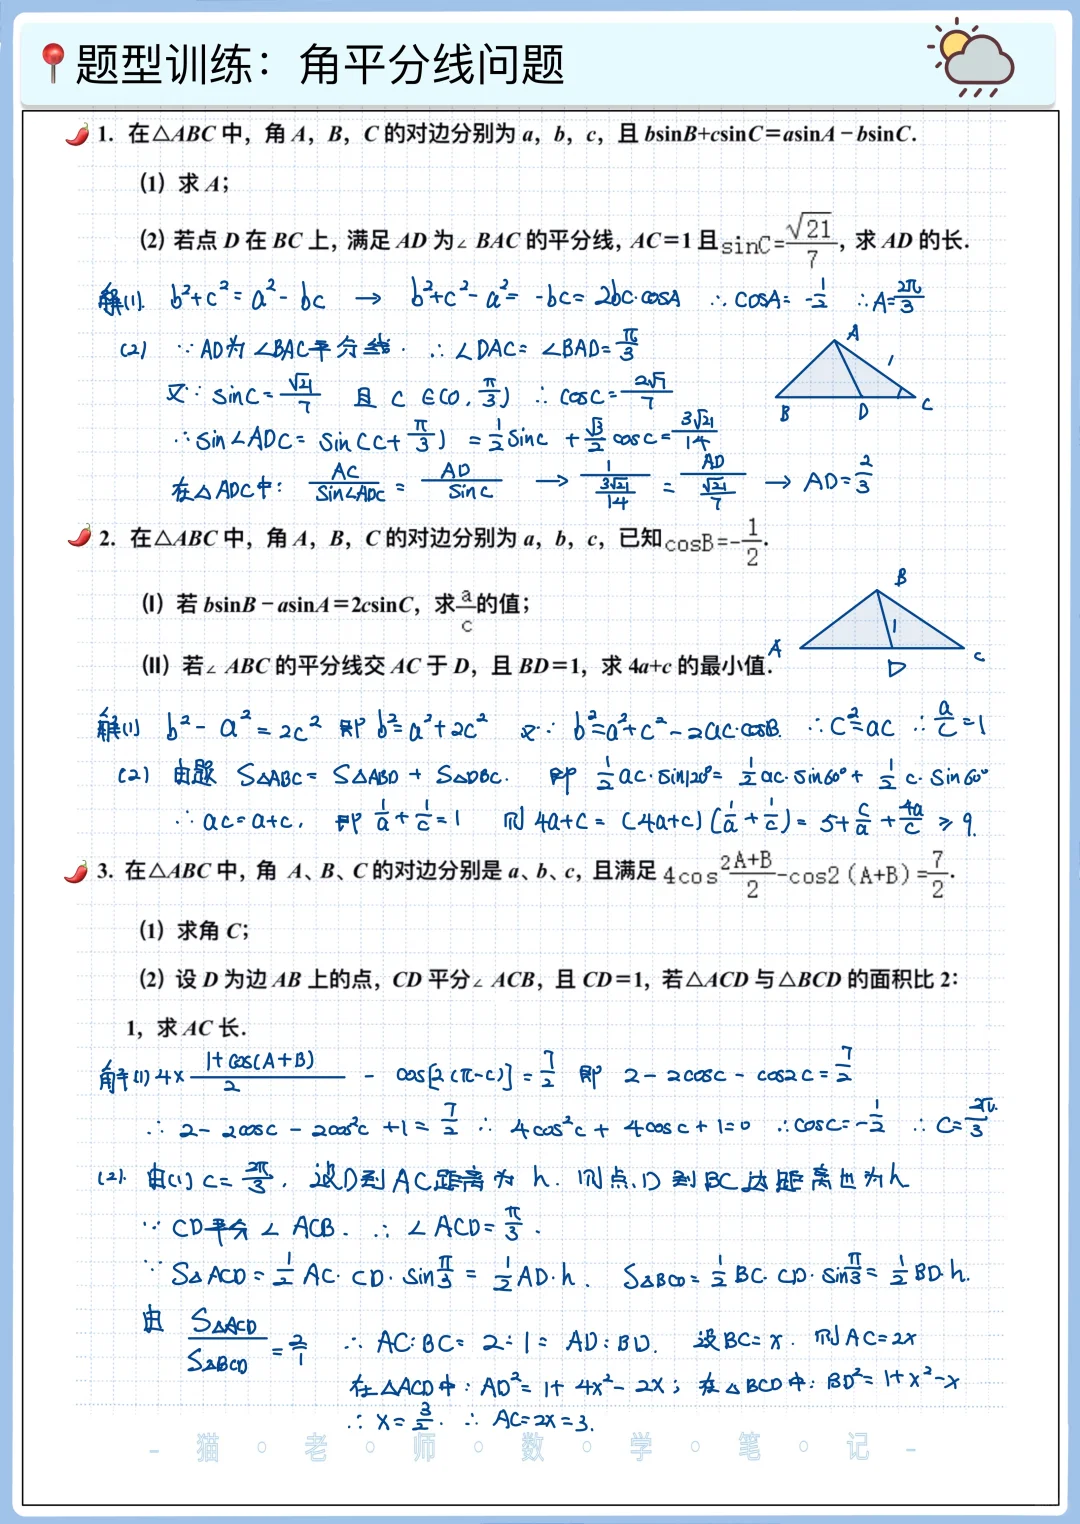 题型训练：角平分线问题
1. 在△ABC中，角A，B，C的对边分别为a，b，c，且bsinB+csinC=asinA－bsinC.
(1) 求A；
(2) 若点D在BC上，满足AD为∠BAC的平分线，AC=1且sinC=√21/7，求AD的长.
解(1). b²+c²=a²-bc → b²+c²-a²=-bc=2bc·cosA ∴cosA=-1/2 ∴A=2π/3
(2) ∵AD为∠BAC平分线. ∴∠DAC=∠BAD=π/3
又∵sinC=√21/7 且C∈(0,π/3) ∴cosC=2√7/7
∴sin∠ADC=sin(C+π/3)=1/2sinC+√3/2cosC=3√21/14
在△ADC中: AC/sin∠ADC=AD/sinC → 1/(3√21/14)=AD/(√21/7) → AD=2/3
A
1
B D C
2. 在△ABC中，角A，B，C的对边分别为a，b，c，已知cosB=-1/2.
(Ⅰ) 若bsinB－asinA=2csinC，求a/c的值；
(Ⅱ) 若∠ABC的平分线交AC于D，且BD=1，求4a+c的最小值.
B
1
A D C
解(1) b²-a²=2c² 即b²=a²+2c² 又∵b²=a²+c²-2ac·cosB. ∴c²=ac ∴a/c=1
(2) 由题 S△ABC=S△ABD+S△DBC. 即1/2ac·sin120°=1/2ac·sin60°+1/2c·sin60°
∴ac=a+c, 即1/a+1/c=1 则4a+c=(4a+c)(1/a+1/c)=5+c/a+4a/c≥9.
3. 在△ABC中，角 A、B、C的对边分别是a、b、c，且满足4cos²(A+B)/2-cos2(A+B)=7/2.
(1) 求角C；
(2) 设D为边AB上的点，CD平分∠ACB，且CD=1，若△ACD与△BCD的面积比2：
1，求AC长.
解(1) 4×(1+cos(A+B))/2-cos[2(π-C)]=7/2 即 2-2cosC-cos2C=7/2
∴2-2cosC-2cos²C+1=7/2 ∴4cos²C+4cosC+1=0 ∴cosC=-1/2 ∴C=2π/3
(2). 由(1)C=2π/3. 设D到AC距离为h. 则点D到BC边距离也为h
∵CD平分∠ACB. ∴∠ACD=π/3.
∵S△ACD=1/2AC·CD·sinπ/3=1/2AD·h. S△BCD=1/2BC·CD·sinπ/3=1/2BD·h.
由 S△ACD/S△BCD=2/1 ∴AC:BC=2:1=AD:BD. 设BC=x. 则AC=2x
在△ACD中: AD²=1+4x²-2x; 在△BCD中: BD²=1+x²-x
∴x=3/2. ∴AC=2x=3.
- 猫 · 老 · 师 · 数 · 学 · 笔 · 记 -